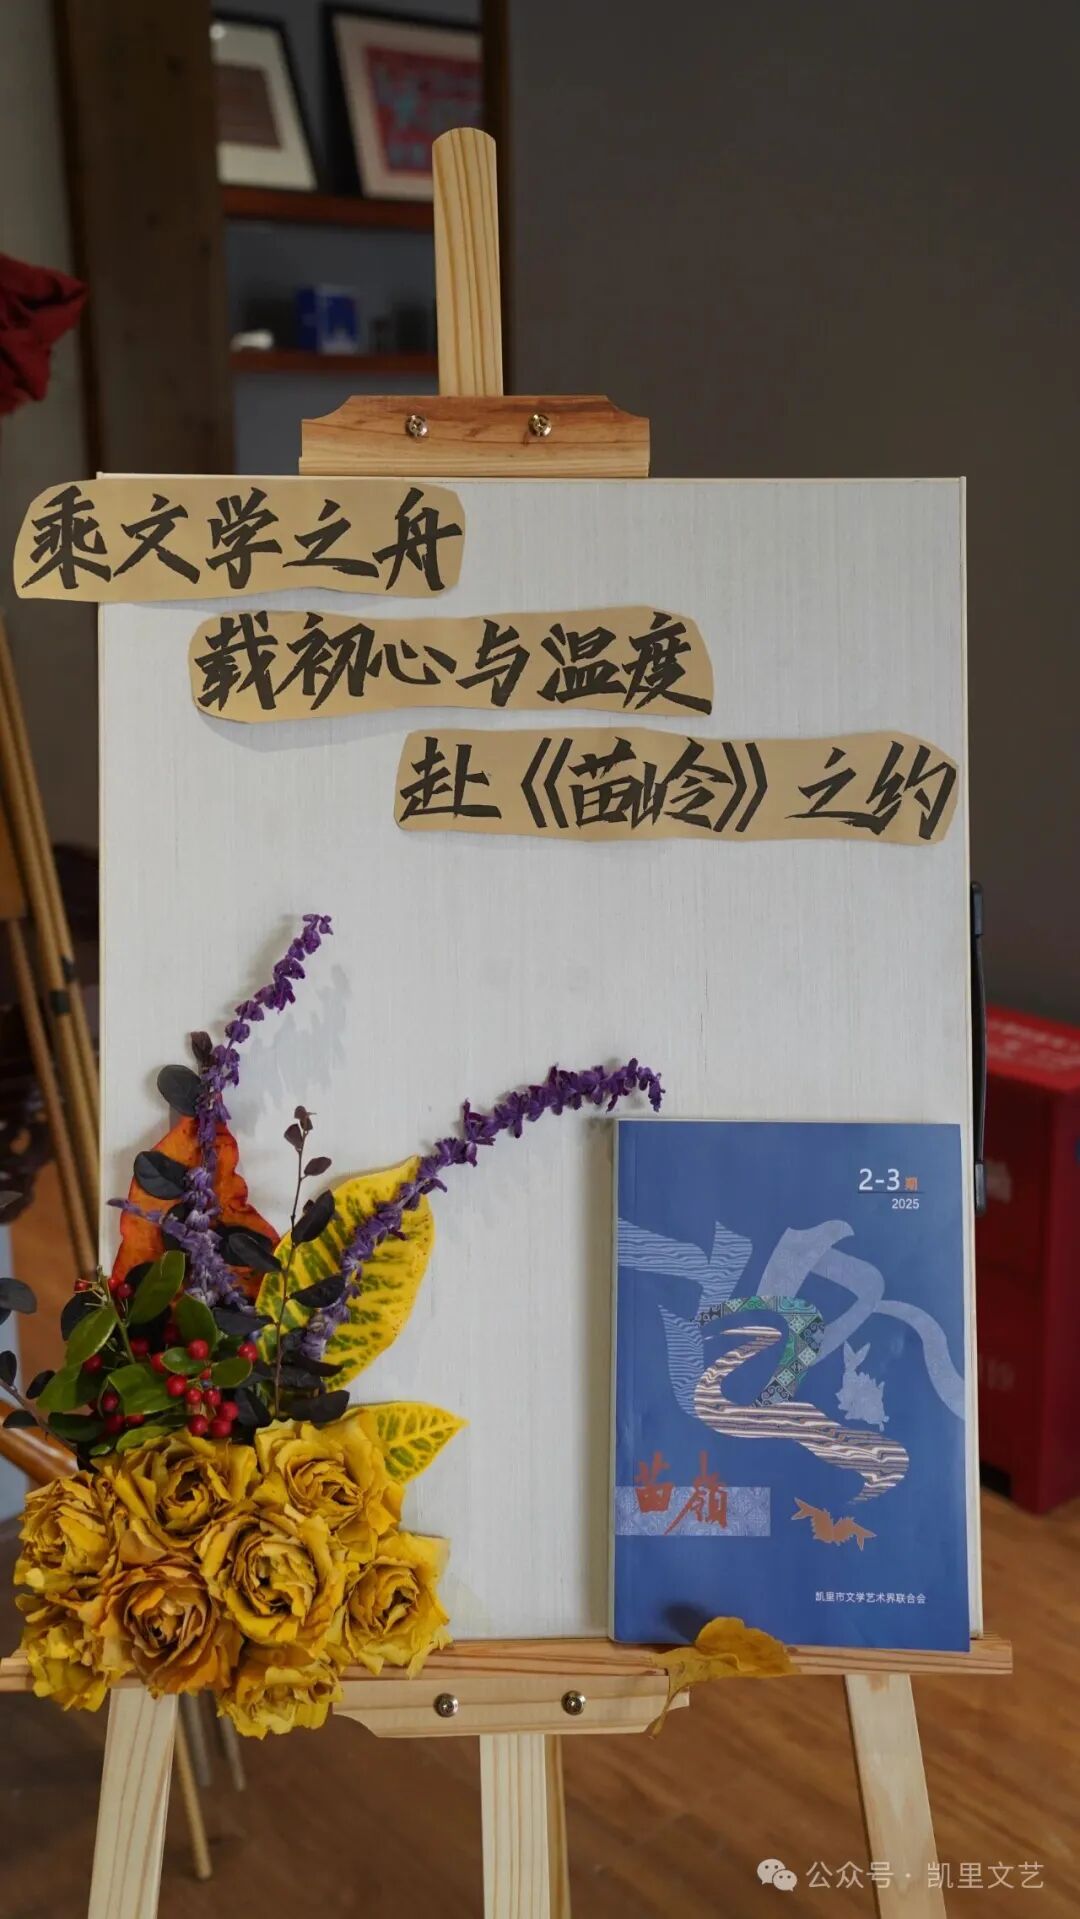 乘文学之舟
载初心与温度
赴《苗岭》之约
2-3期
2025
苗嶺
凯里市文学艺术界联合会
公众号·凯里文艺